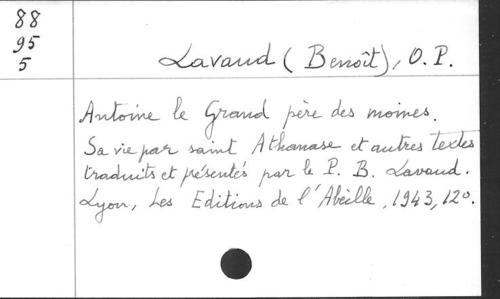 88
95
5
Lavaud (Benoît), O. P.
Antoine le Grand père des moines.
Sa vie par saint Athanase et autres textes
traduits et présentés par le P. B. Lavaud.
Lyon, Les Editions de l'Abeille, 1943, 12°.